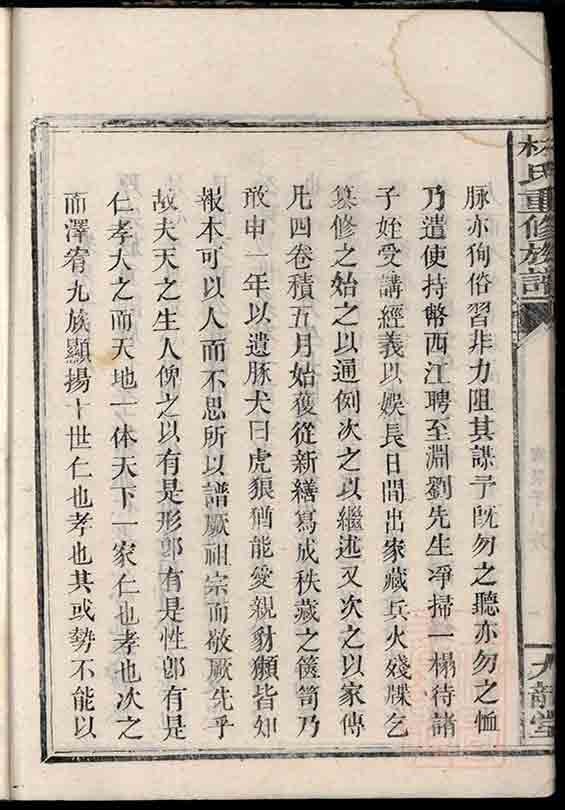 林氏重修族譜
九龍堂
脉亦徇俗習非力阻其謀予既勿之聽亦勿之恤
乃遣使持幣西江聘至淵劉先生凈掃一榻待諸
子姪受講經義以娛長日間出家藏兵火殘牒乞
纂修之始之以通例次之以繼述又次之以家傳
凡四卷積五月始獲從新繕寫成秩藏之篋笥乃
敢申一年以遺豚犬曰虎狼猶能愛親豺獺皆知
報本可以人而不思所以譜厥祖宗而敬厥先乎
故夫天之生人俾之以有是形郎有是性郎有是
仁孝大之而天地一体天下一家仁也孝也次之
而澤宥九族顯揚十世仁也孝也其或勢不能以